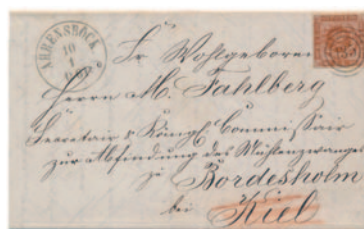 AHRENSBÖCK
10
1
Sr Wohlgeboren
Herrn M. Fahlberg
Secretair & Königl. Commissair
zur Abfindung des Mühlenzwanges
zu Bordesholm
bei Kiel